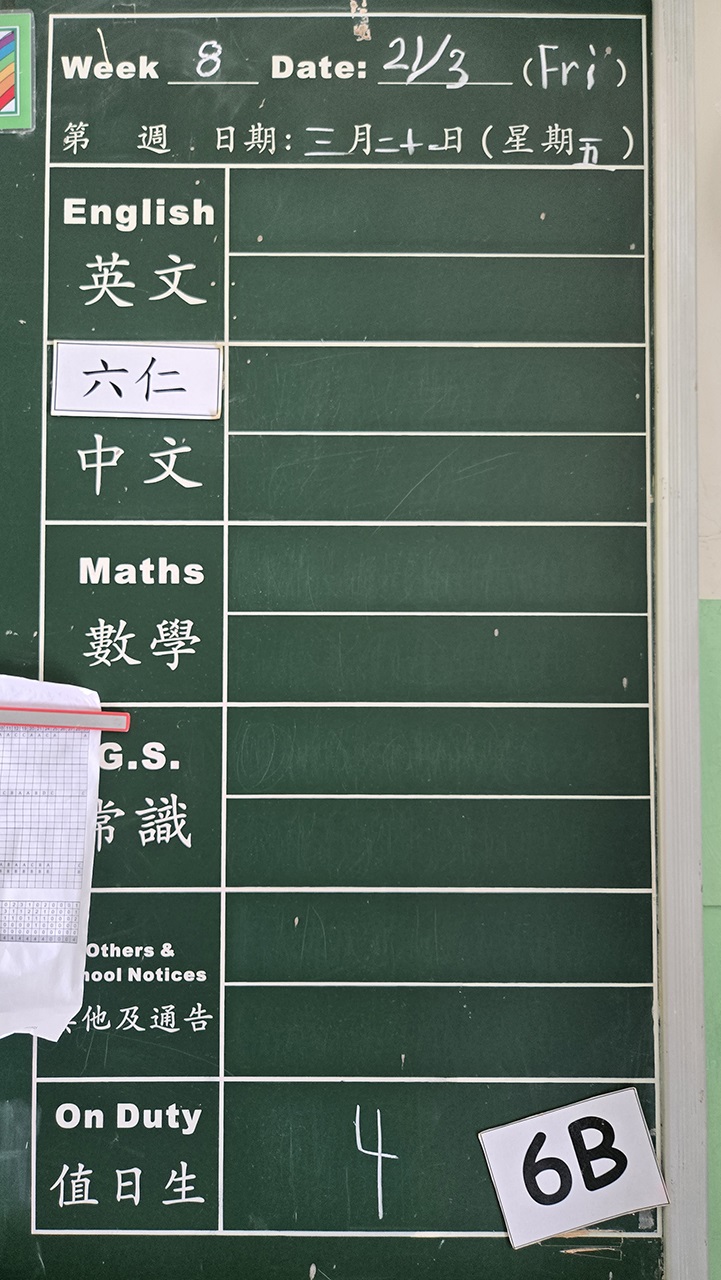 Week 8 Date: 21/3 (Fri)
第 週 日期: 三月二十一日 (星期五)
English
英文
六仁
中文
Maths
數學
G.S.
常識
Others &
hool Notices
其他及通告
On Duty 4
值日生
6B